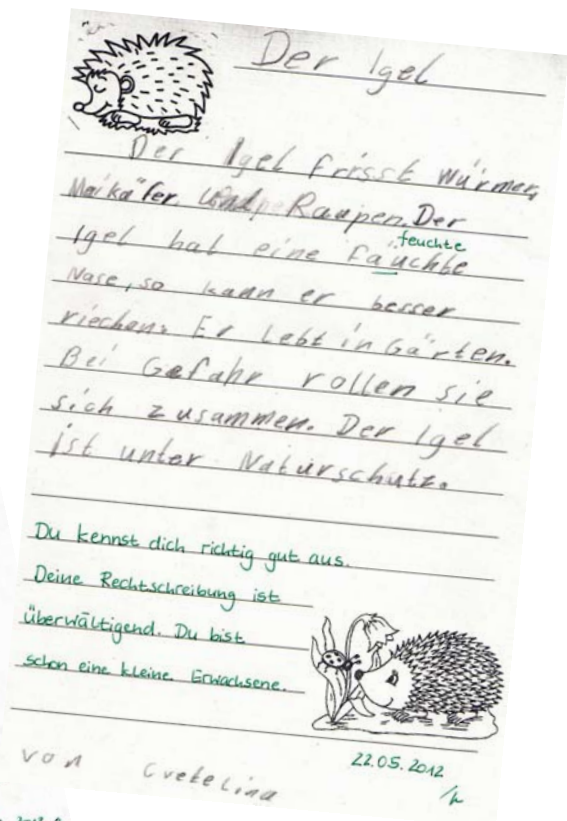 Der Igel
Der Igel frisst Würmer,
Maikäfer und Raupen. Der
feuchte
Igel hat eine fäuchte
Nase, so kann er besser
riechen. Er Lebt in Gärten.
Bei Gefahr rollen sie
sich zusammen. Der Igel
ist unter Naturschutz.
Du kennst dich richtig gut aus.
Deine Rechtschreibung ist
überwältigend. Du bist
schon eine kleine Erwachsene.
22.05.2012
von Cvetelina